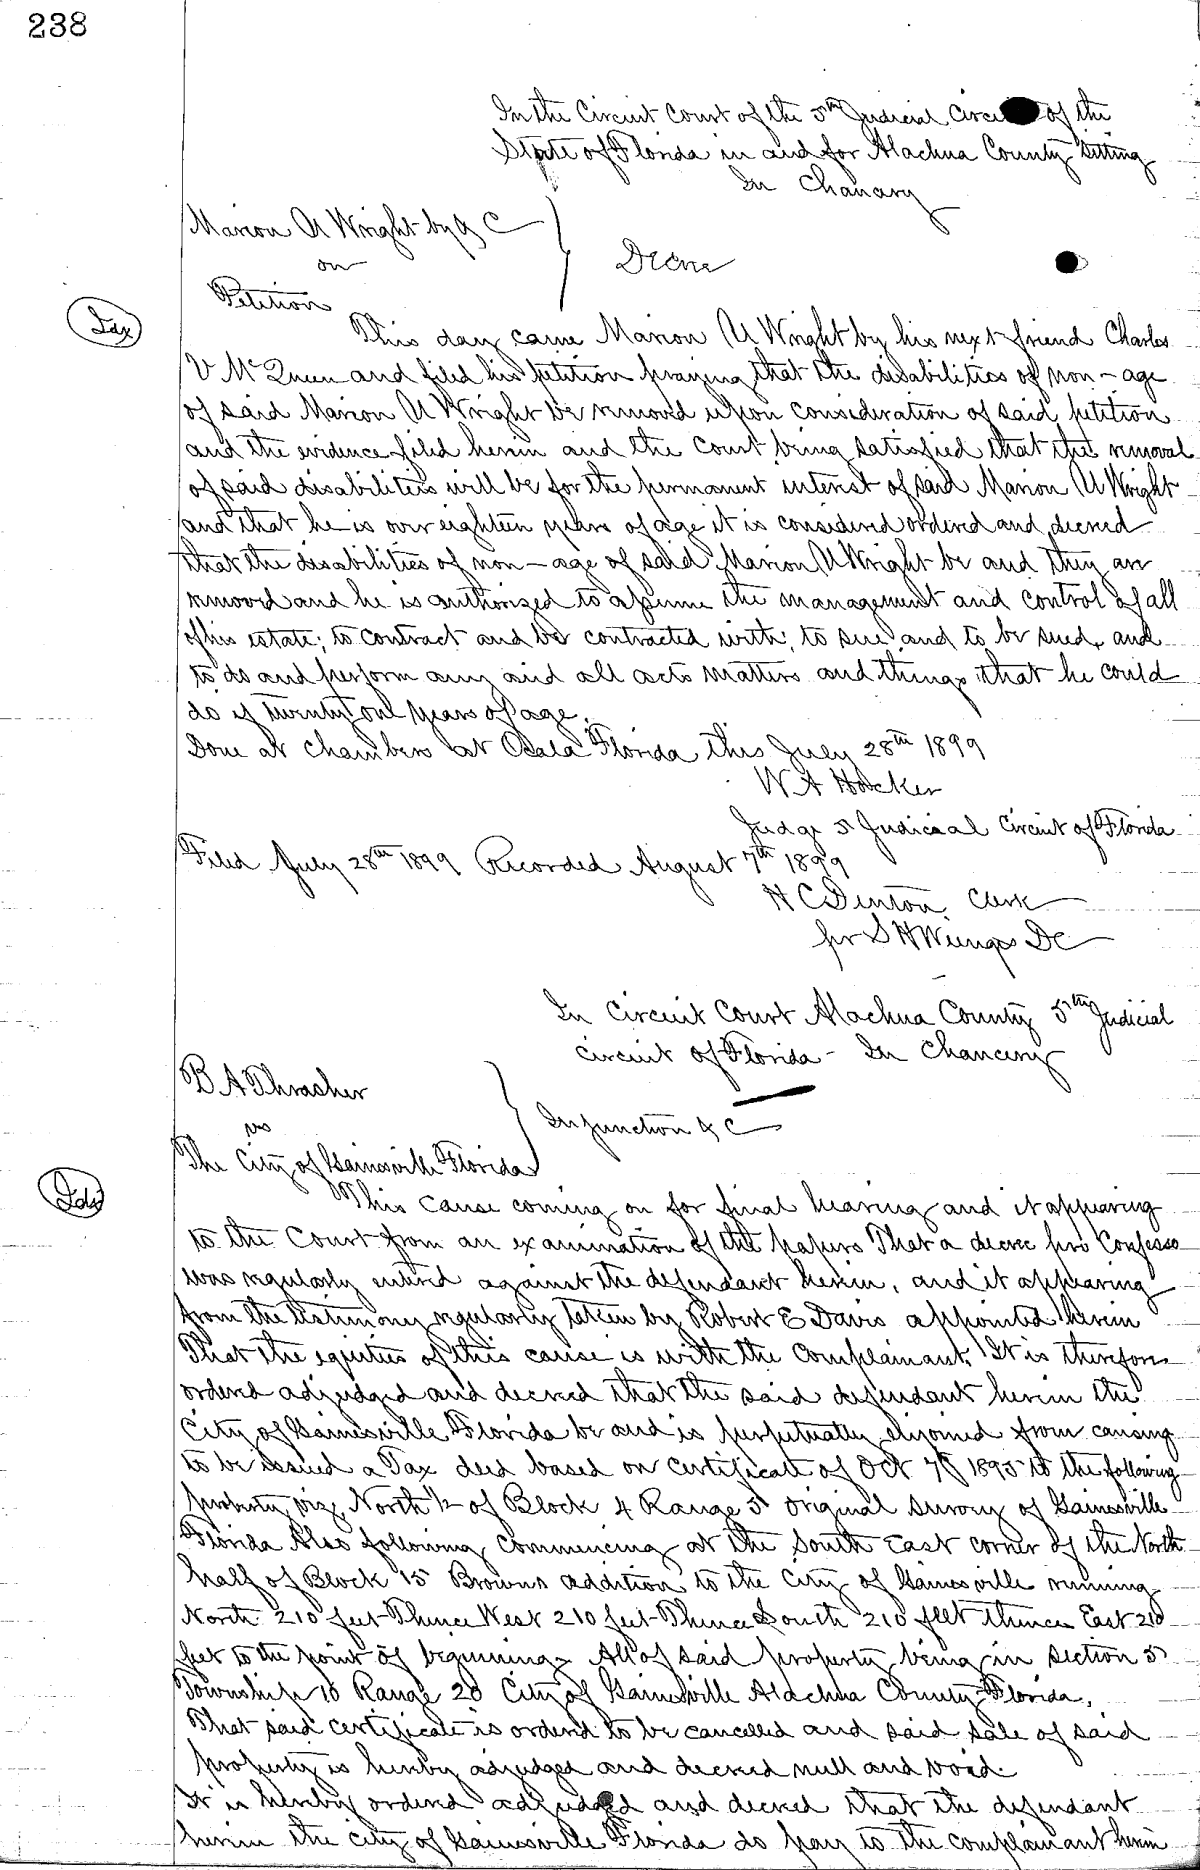 238
In the Circuit Court of the 5th Judicial Circuit of the
State of Florida in and for Alachua County Sitting
In Chancery
Marion U Wright by &C
on
Petition
Decree
Idx
This day came Marion U Wright by his next friend Charles
V McQueen and filed his petition praying that the disabilities of non-age
of said Marion U Wright be removed upon consideration of said petition
and the evidence filed herein and the Court being satisfied that the removal
of said disabilities will be for the permanent interest of said Marion U Wright
and that he is over eighteen years of age it is considered ordered and decreed
that the disabilities of non-age of said Marion U Wright be and they are
removed and he is authorized to assume the management and control of all
of his estate; to contract and be contracted with; to sue and to be sued, and
to do and perform any and all acts matters and things that he could
do if twenty one years of age.
Done at chambers at Ocala Florida this July 28th 1899
W A Hocker
Judge 5 Judicial Circuit of Florida
Filed July 28th 1899 Recorded August 7th 1899
H C Denton Clerk
per S H Wienges DC
In Circuit Court Alachua County 5th Judicial
Circuit of Florida - In Chancery
B A Thrasher
vs
The City of Gainesville Florida
Injunction &C
Idx
This cause coming on for final hearing and it appearing
to the Court from an examination of the papers That a decree pro Confesso
was regularly entered against the defendant herein, and it appearing
from the testimony regularly taken by Robert E Davis appointed herein
That the equities of this cause is with the Complainant. It is therefore
ordered adjudged and decreed that the said defendant herein the
City of Gainesville Florida be and is perpetually enjoined from causing
to be issued a Tax deed based on certificate of Oct 7th 1895 to the following
property viz, North 1/2 of Block 4 Range 5 original survey of Gainesville
Florida Also following commencing at the South East corner of the North
half of Block 15 Browns addition to the City of Gainesville running
North 210 feet Thence West 210 feet Thence South 210 feet thence East 210
feet to the point of beginning. All of said property being in section 5
Township 10 Range 20 City of Gainesville Alachua County Florida,
That said certificate is ordered to be cancelled and said sale of said
property is hereby adjudged and decreed null and void.
It is hereby ordered adjudged and decreed that the defendant
herein the city of Gainesville Florida do pay to the complainant herein